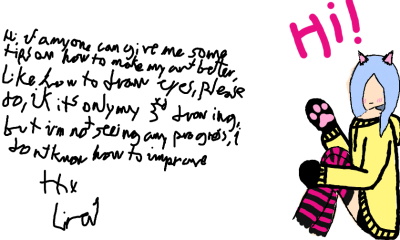 Hi, if anyone can give me some
tips on how to make my art better,
like how to draw eyes, please
do, ik its only my 3rd drawing,
but im not seeing any progress, i
dont know how to improve
thx
Hi!